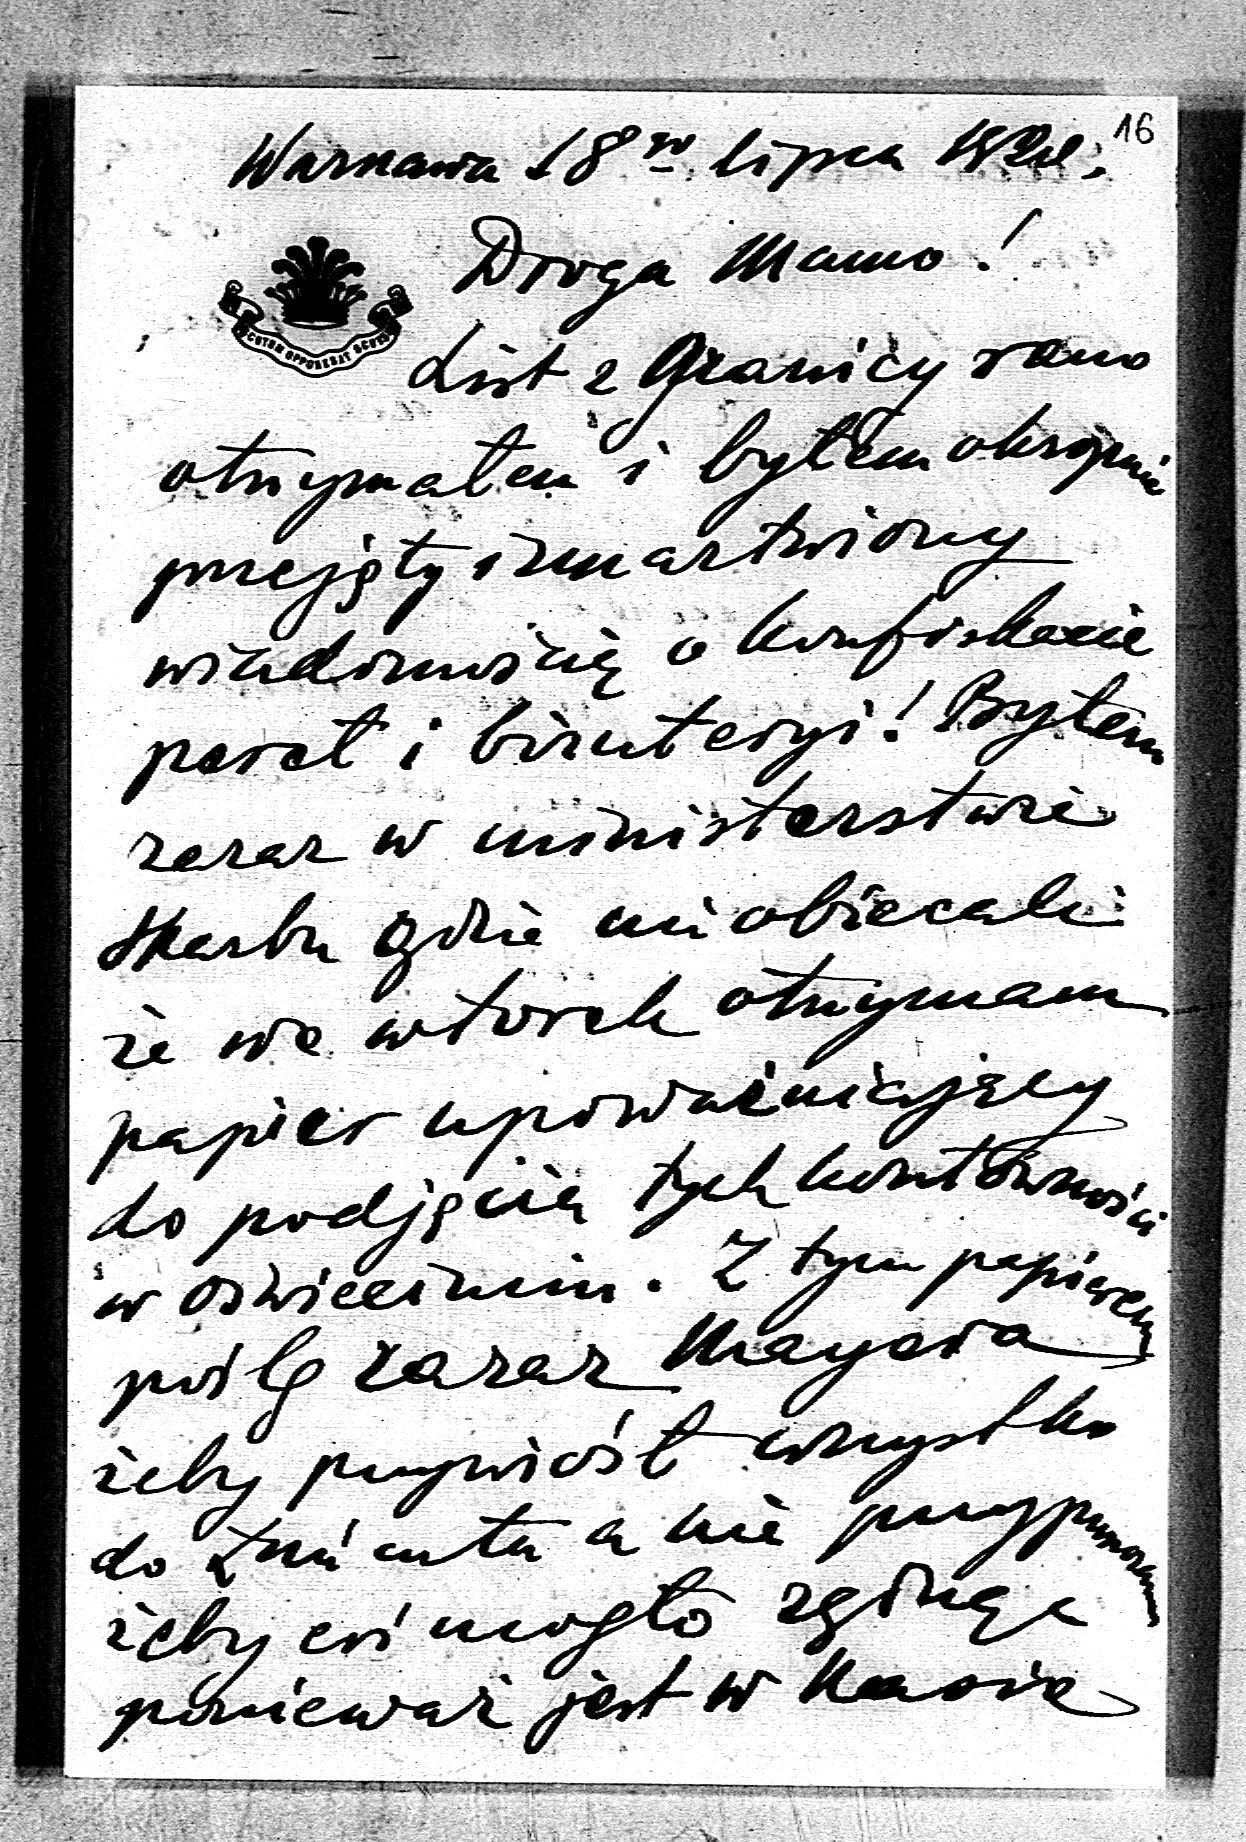 16
Warszawa 18go lipca
Droga Mamo!
SCUTUM OPPONEBAT SCUTIS
List z Granicy rano
otrzymałem i byłem okropnie
przejęty i zmartwiony
wiadomością o konfiskacie
pereł i biżuteryi! Byłem
zaraz w ministerstwie
Skarbu gdzie mi obiecali
że we wtorek otrzymam
papier upoważniający
do podjęcia tych kosztowności
w Oświecimiu. Z tym papierem
poślę zaraz Mayera
żeby przywiózł wszystko
do Łańcuta a nie przypuszczam
żeby coś mogło zginąć
ponieważ jest w Kasie